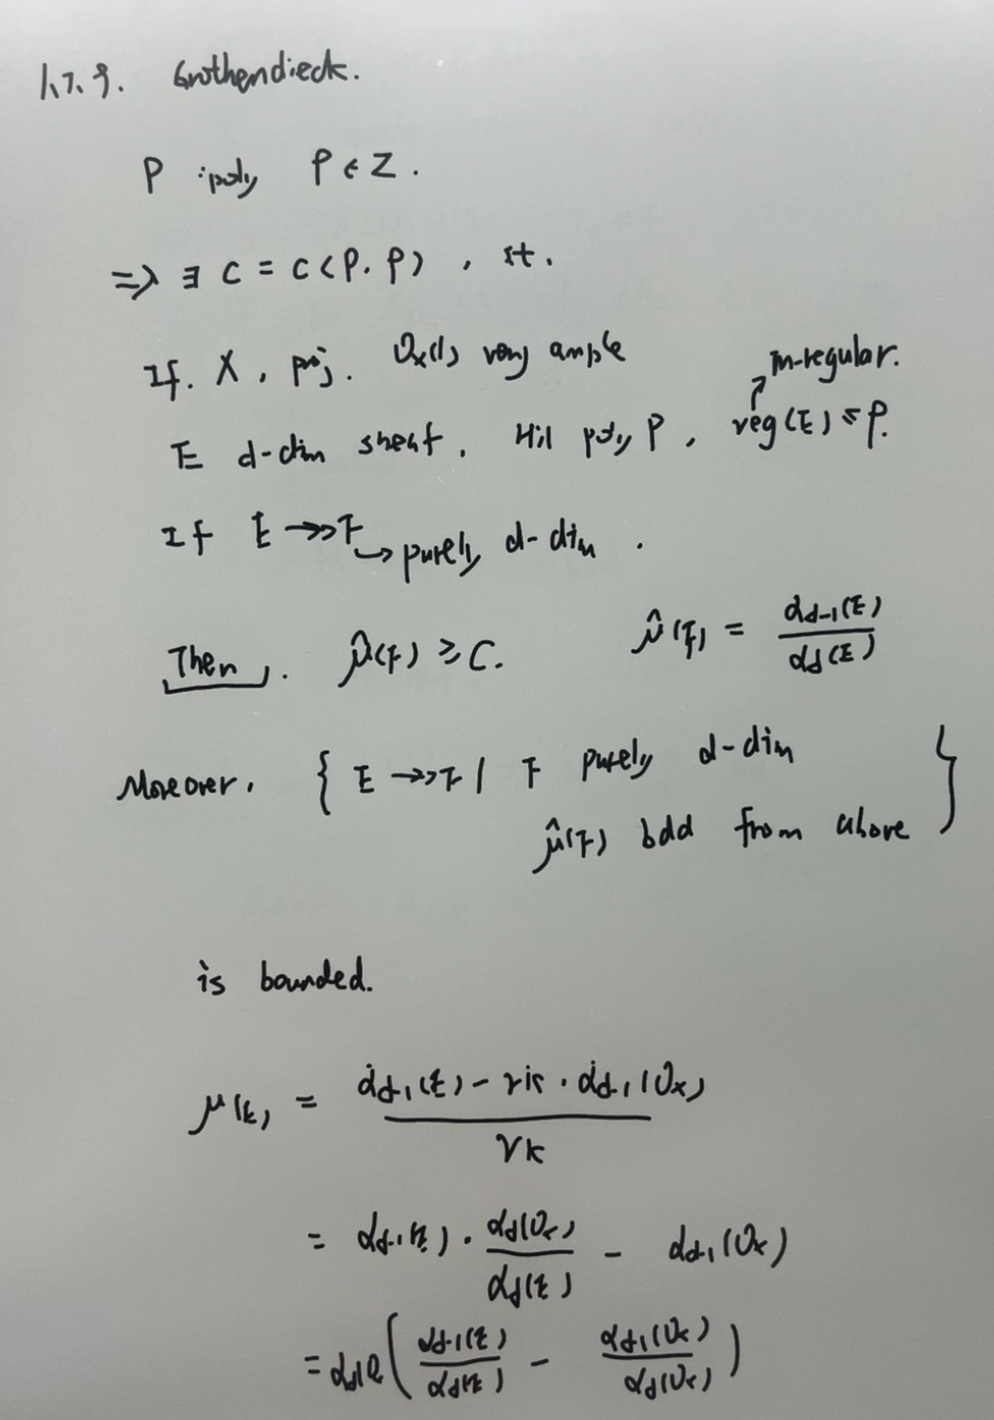 1.7.9. Grothendieck.
P : poly ρ ∈ Z.
=> ∃ C = C(P. ρ) , st.
If. X , proj. O_X(1) very ample
m-regular.
E d-dim sheaf. Hil poly P , reg(E) ≤ ρ.
If E ->> F -> purely d-dim .
Then . μ̂(F) ≥ C. μ̂(F) = α_{d-1}(E) / α_d(E)
Moreover. { E ->> F | F purely d-dim
μ̂(F) bdd from above }
is bounded.
μ(E) = (α_{d-1}(E) - rk · α_{d-1}(O_X)) / rk
= α_{d-1}(E) · α_d(O_X) / α_d(E) - α_{d-1}(O_X)
= α_d(O_X) ( α_{d-1}(E) / α_d(E) - α_{d-1}(O_X) / α_d(O_X) )